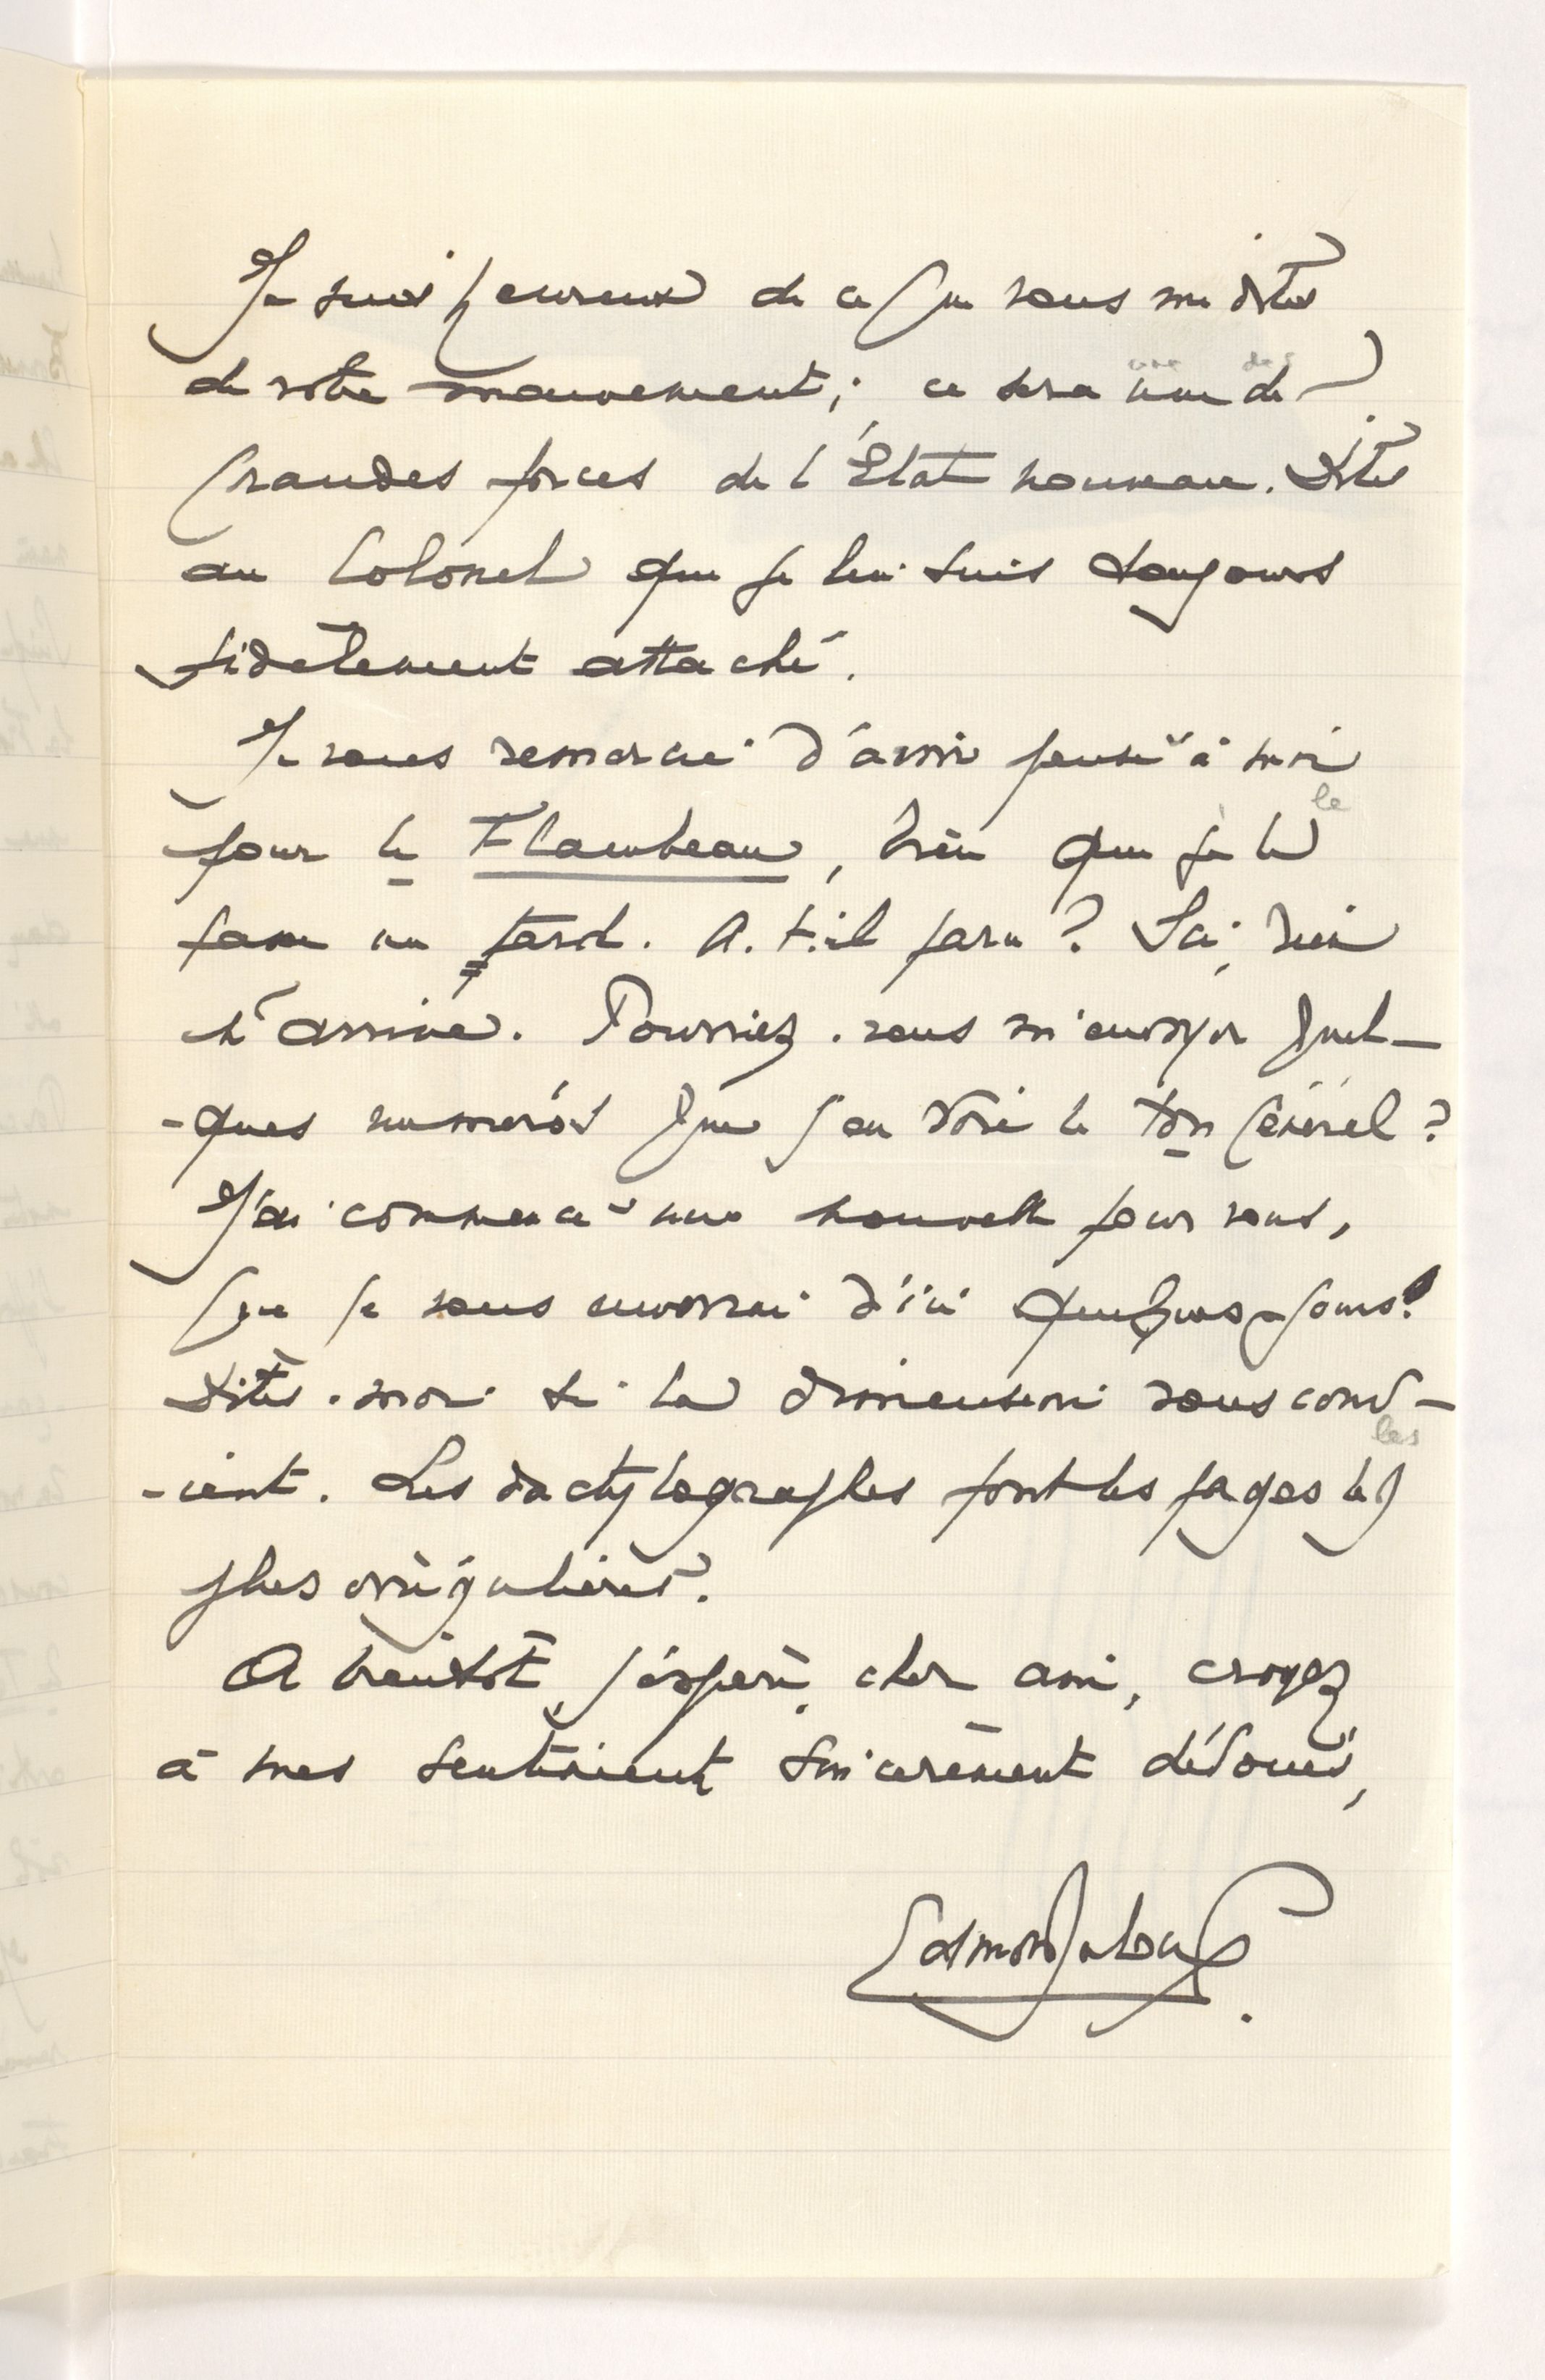 Je suis heureux de ce que vous me dites
de votre mouvement ; ce sera une des
grandes forces de l'État nouveau. Dites
au Colonel que je lui suis toujours
fidèlement attaché.
Je vous remercie d'avoir pensé à moi
le
pour le Flambeau, bien que je le
fasse un tard. A-t-il paru ? Ici, rien
n'arrive. Pourriez-vous m'envoyer quel-
-ques numéros que j'en voie le ton général ?
J'ai commencé une nouvelle pour vous,
que je vous enverrai d'ici quelques jours.
Dites-moi si la dimension vous conv-
les
-ient. Les dactylographes font les pages les
plus irrégulières.
A bientôt, j'espère, cher ami, croyez
à mes sentiments sincèrement dévoués,
Edmond Jaloux